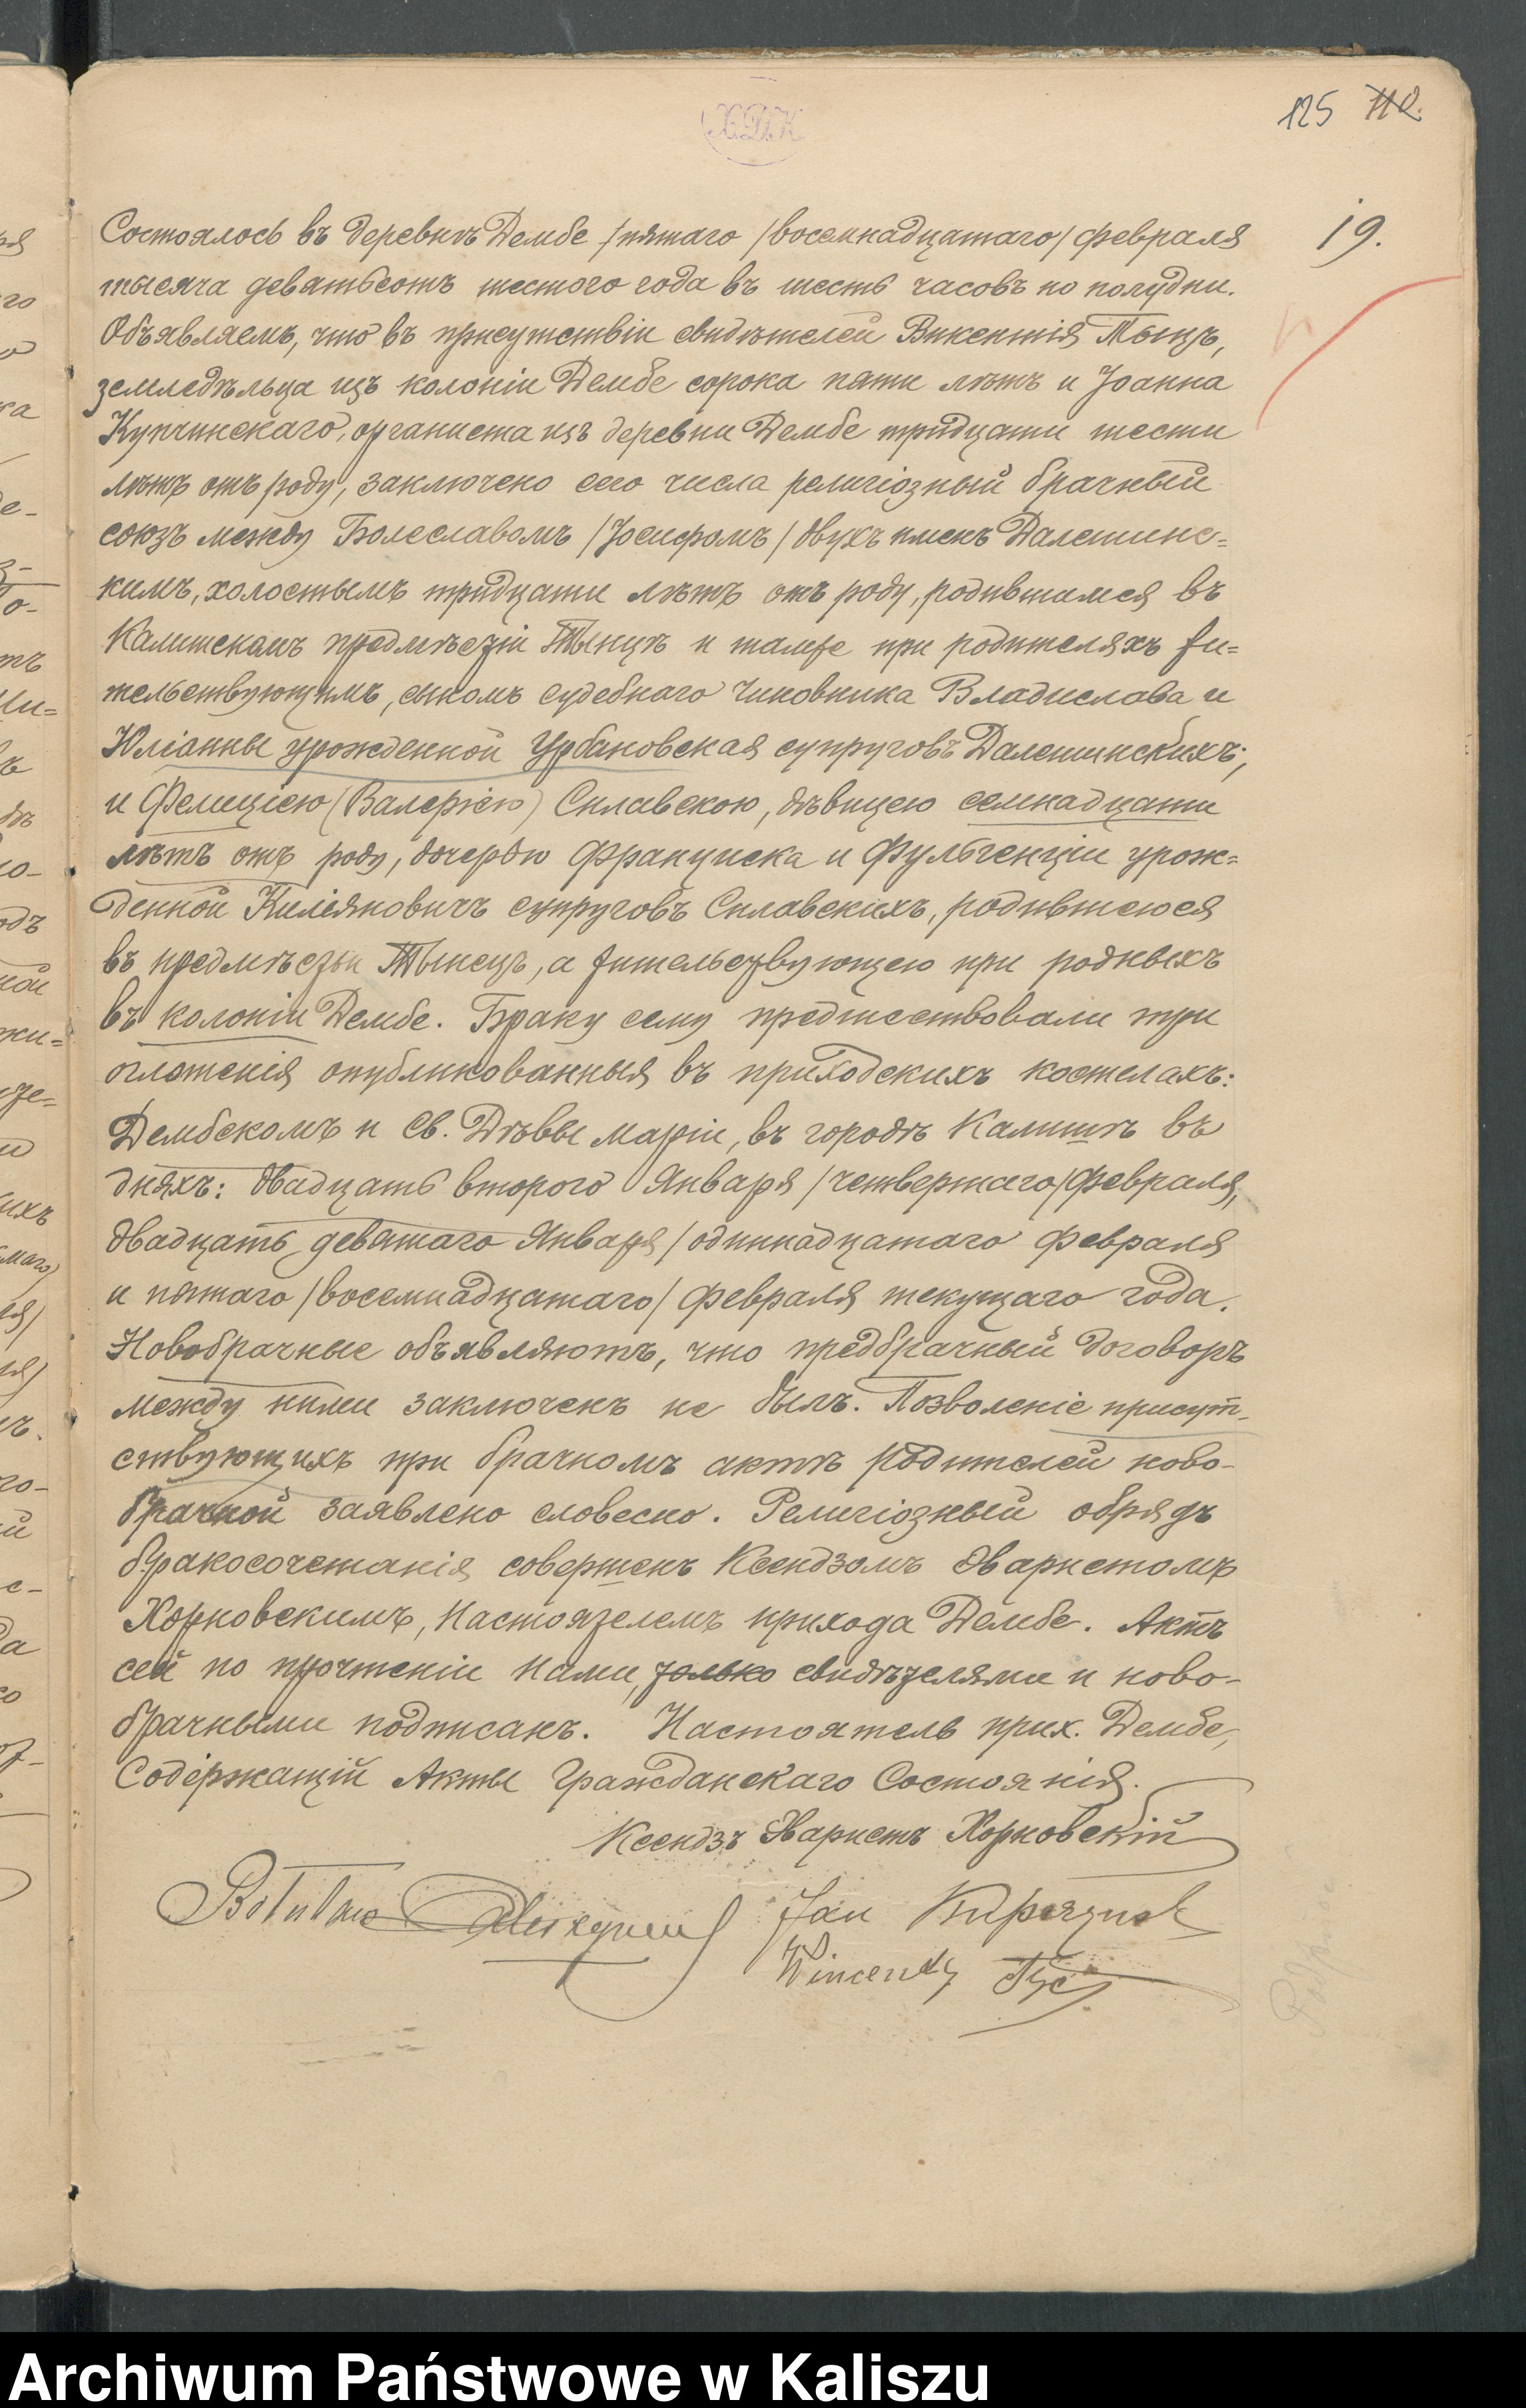 125 112.
19.
Состоялось въ деревнѣ Дембе /пятаго /восемнадцатаго/ февраля
тысяча девятьсотъ шестого года въ шесть часовъ по полудни.
Объявляемъ, что въ присутствіи свидѣтелей Викентія Тыцъ,
земледѣльца изъ колоніи Дембе сорока пяти лѣтъ и Іоанна
Купчинскаго, органиста изъ деревни Дембе тридцати шести
лѣтъ отъ роду, заключено сего числа религіозный брачный
союзъ между Болеславомъ /Іосифомъ/ двухъ именъ Далешинс=
кимъ, холостымъ тридцати лѣтъ отъ роду, родившимся въ
Калишскомъ предмѣстіи Тынцѣ и тамже при родителяхъ жи=
тельствующимъ, сыномъ судебнаго чиновника Владислава и
Юліанны урожденной Урбановская супруговъ Далешинскихъ;
и Фелиціею (Валеріею) Силавскою, дѣвицею семнадцати
лѣтъ отъ роду, дочерью Франциска и Фульгенціи урож=
денной Киліяновичъ супруговъ Силавскихъ, родившеюся
въ предмѣстьи Тынецъ, а жительствующею при родныхъ
въ колоніи Дембе. Браку сему предшествовали три
оглошенія опубликованныя въ приходскихъ костелахъ:
Дембскомъ и Св. Дѣвы Маріи, въ городѣ Калишѣ въ
дняхъ: двадцать второго Января /четвертаго/ Февраля,
двадцать девятаго Января /одиннадцатаго Февраля
и пятаго /восемнадцатаго/ Февраля текущаго года.
Новобрачные объявляютъ, что предбрачный договоръ
между ними заключенъ не былъ. Позволеніе присут-
ствующихъ при брачномъ актѣ родителей ново-
брачной заявлено словесно. Религіозный обрядъ
бракосочетанія совершенъ Ксендзомъ Эваристомъ
Хорновскимъ, Настоятелемъ прихода Дембе. Актъ
сей по прочтеніи нами, только свидѣтелями и ново-
брачными подписанъ. Настоятель прих. Дембе,
Содержащій Акты Гражданскаго Состоянія.
Ксендзъ Эваристъ Хорновскій
Jan Kupczynsk
Wincenty Tyc
Archiwum Państwowe w Kaliszu